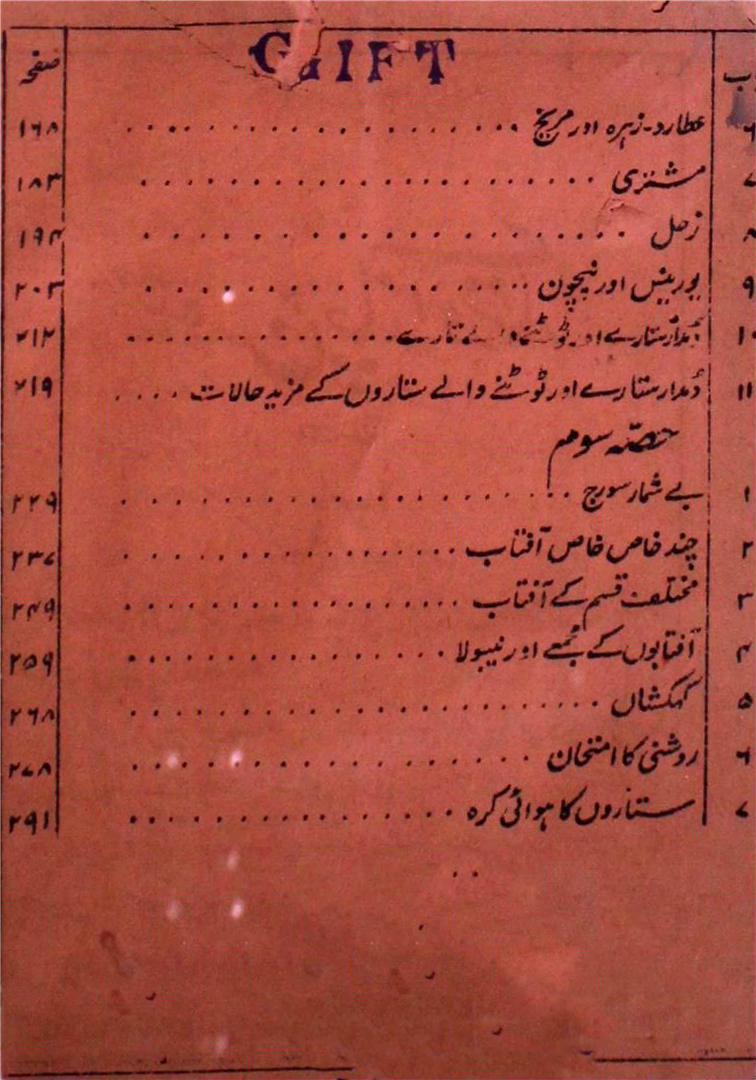 GIFT
صفحہ
۶ عطارد۔ زہرہ اور مریخ ۱۶۸
۷ مشتری ۱۸۳
۸ زحل ۱۹۴
۹ یورینس اور نیپچون ۲۰۳
۱۰ دُمدار ستارے اور ٹوٹنے والے تارے ۲۱۲
۱۱ دُمدار ستارے اور ٹوٹنے والے ستاروں کے مزید حالات ۲۱۹
حصّہ سوم
۱ بے شمار سورج ۲۲۹
۲ چند خاص خاص آفتاب ۲۳۷
۳ مختلف قسم کے آفتاب ۲۴۹
۴ آفتابوں کے مجمعے اور نیبولا ۲۵۹
۵ کہکشاں ۲۶۸
۶ روشنی کا امتحان ۲۷۸
۷ ستاروں کا ہوائی کرہ ۲۹۱